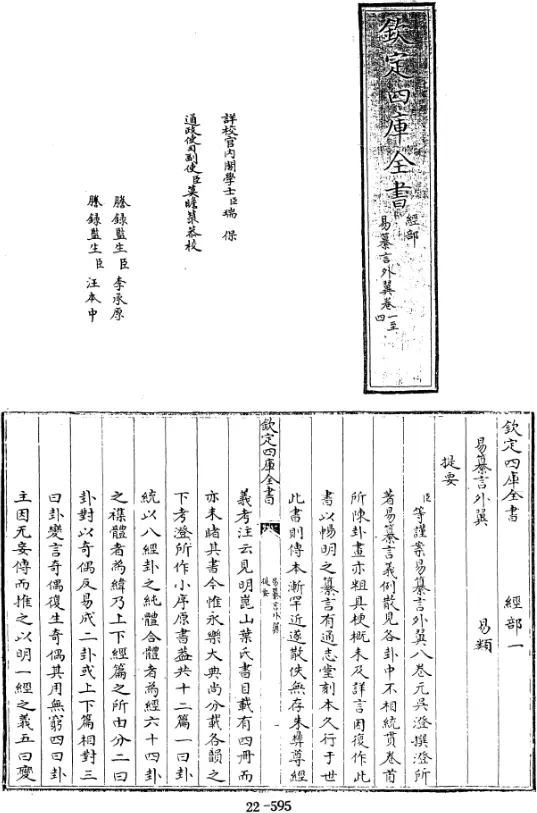 欽定四庫全書
經部
易纂言外翼卷一至
四
詳校官內閣學士臣瑞保
通政使司副使臣莫瞻菉恭校
謄錄監生臣李承原
謄錄監生臣汪本中
欽定四庫全書 經部一
易纂言外翼 易類
提要
臣等謹案易纂言外翼八卷元吳澄撰澄所
著易纂言義例散見各卦中不相統貫卷首
所陳卦畫亦粗具梗概未及詳言因復作此
書以暢明之纂言有通志堂刻本久行于世
此書則傳本漸罕近遂散佚無存朱彝尊經
欽定四庫全書
易纂言外翼
提要
義考注云見明崑山葉氏書目載有四冊而
亦未睹其書今惟永樂大典尚分載各韻之
下考澄所作小序原書蓋共十二篇一曰卦
統以八經卦之純體合體者為經六十四卦
之雜體者為緯乃上下經篇之所由分二曰
卦對以奇偶反易成二卦或上下篇相對三
曰卦變言奇偶復生奇偶其用無窮四曰卦
主因无妄傳而推之以明一經之義五曰變
22-595